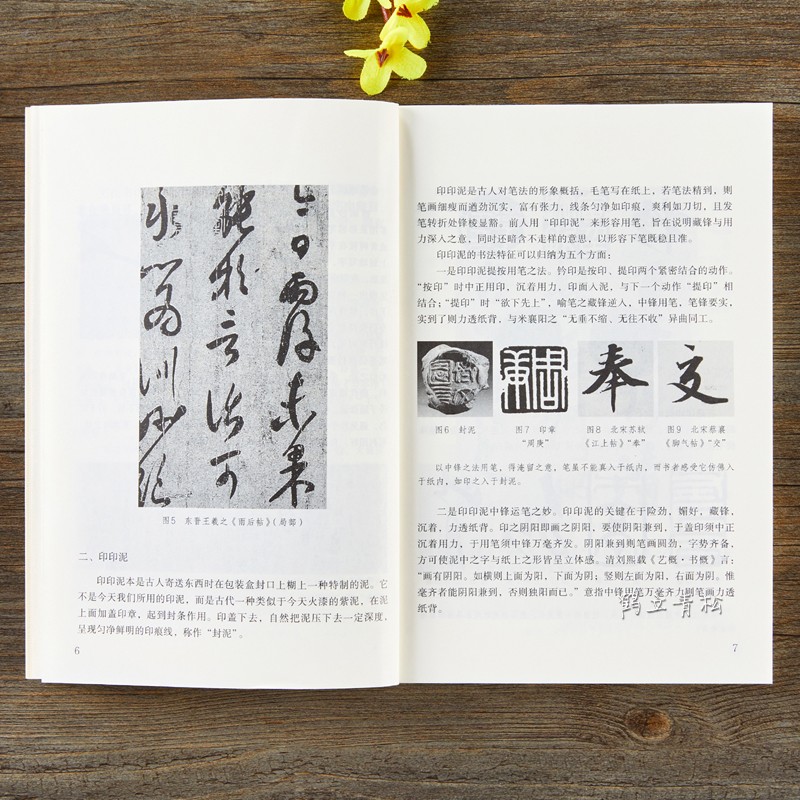 图5 东晋王羲之《雨后帖》(局部)
二、印印泥
印印泥本是古人寄送东西时在包装盒封口上糊上一种特制的泥。它
不是今天我们所用的印泥，而是古代一种类似于今天火漆的紫泥，在泥
上面加盖印章，起到封条作用。印盖下去，自然把泥压下去一定深度，
呈现匀净鲜明的印痕线，称作“封泥”。
6
印印泥是古人对笔法的形象概括，毛笔写在纸上，若笔法精到，则
笔画细瘦而遒劲沉实，富有张力，线条匀净如印痕，爽利如刀切，且发
笔转折处锋棱显豁。前人用“印印泥”来形容用笔，旨在说明藏锋与用
力深入之意，同时还暗含不走样的意思，以形容下笔既稳且准。
印印泥的书法特征可以归纳为五个方面：
一是印印泥提按用笔之法。钤印是按印、提印两个紧密结合的动作。
“按印”时中正用印，沉着用力，印面入泥，与下一个动作“提印”相
结合；“提印”时“欲下先上”，喻笔之藏锋逆入，中锋用笔，笔锋要实，
实到了则力透纸背，与米襄阳之“无垂不缩、无往不收”异曲同工。
奉
交
图6 封泥
图7 印章
“周庚”
图8 北宋苏轼
《江上帖》“奉”
图9 北宋蔡襄
《脚气帖》“交”
以中锋之法用笔，得淹留之意，笔虽不能真入于纸内，而书者感受它仿佛入
于纸内，如印之入于封泥。
二是印印泥中锋运笔之妙。印印泥的关键在于险劲，媚好，藏锋，
沉着，力透纸背。印之阴阳即画之阴阳，要使阴阳兼到，于盖印须中正
沉着用力，于用笔须中锋万毫齐发。阴阳兼到则笔画圆劲，字势齐备，
方可使泥中之字与纸上之形皆呈立体感。清刘熙载《艺概·书概》言：
“画有阴阳。如横则上面为阳，下面为阴；竖则左面为阳，右面为阴。惟
毫齐者能阴阳兼到，否则独阳而已。”意指中锋用笔万毫齐力则笔画力透
纸背。
鹤立青松
7